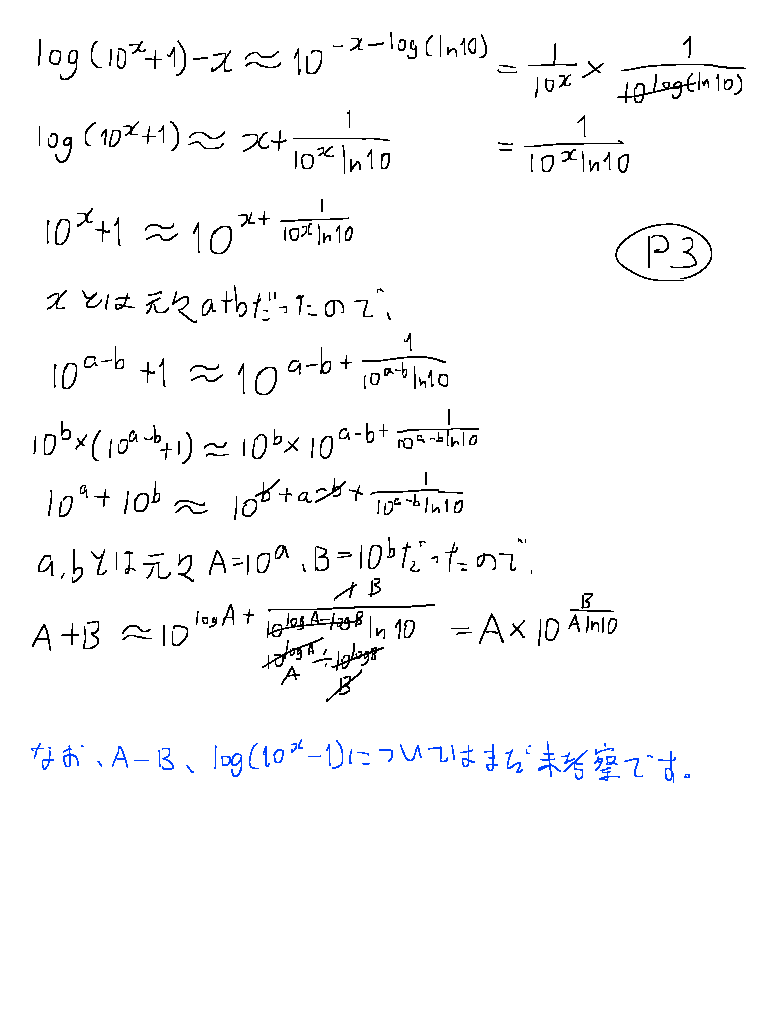 log(10^x+1)-x≈10^{-x-log(ln10)}=1/10^x×1/10^{log(ln10)}
log(10^x+1)≈x+1/(10^x ln10) =1/(10^x ln10)
10^x+1≈10^{x+1/(10^x ln10)}
P3
xとは元々a+bだったので、
10^{a-b}+1≈10^{a-b+1/(10^{a-b} ln10)}
10^b×(10^{a-b}+1)≈10^b×10^{a-b+1/(10^{a-b} ln10)}
10^a+10^b≈10^{b+a-b+1/(10^{a-b} ln10)}
a,bとは元々A=10^a、B=10^bだったので、
A+B≈10^{logA+1/(10^{logA-logB} ln10)}=A×10^{B/(A ln10)}
B
10^{logA}÷10^{logB}
A B
なお、A-B、log(10^x-1)についてはまだ未考察です。